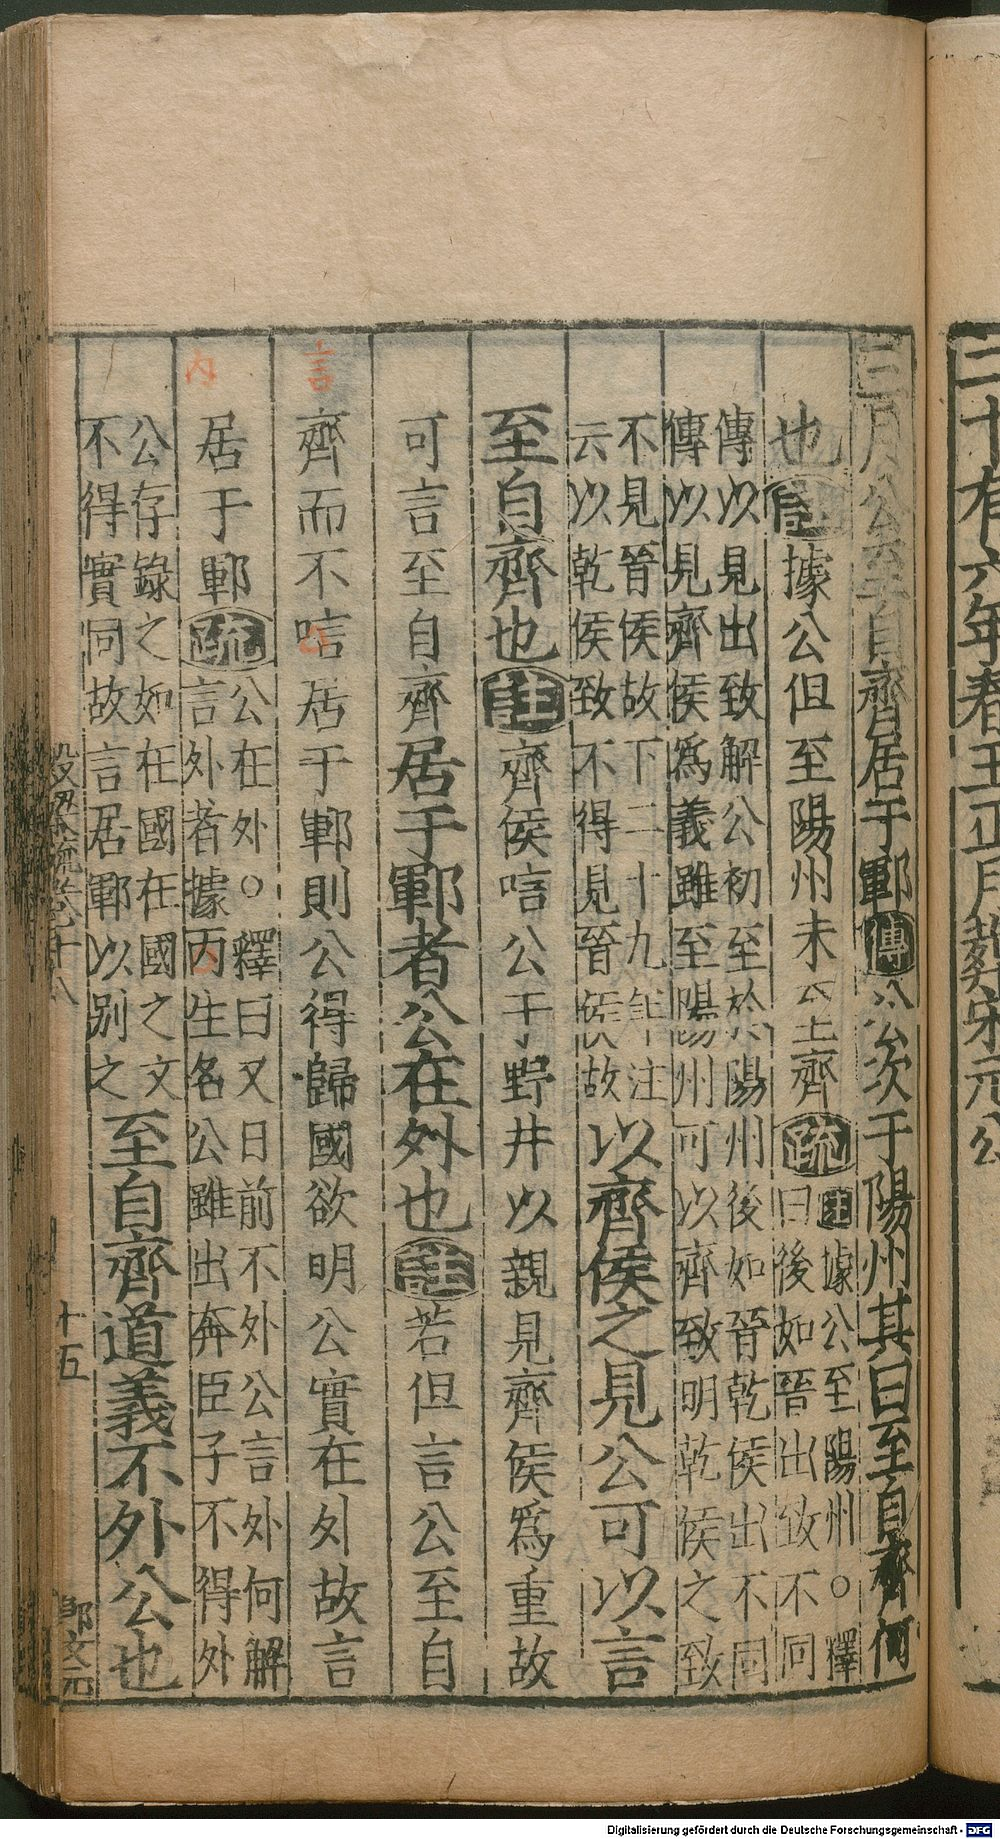 二十有六年春王正月葬宋元公
三月公至自齊居于鄆傳公次于陽州其曰至自齊何
也註據公但至陽州未云至齊疏註據公至陽州○釋
曰後如晉出致不同
傳以見出致解公初至於陽州後如晉乾侯出不同
傳以見齊侯爲義雖至陽州可以齊致明乾侯之致
不見晉侯故下二十九年注
云以乾侯致不得見晉侯故以齊侯之見公可以言
至自齊也註齊侯唁公于野井以親見齊侯爲重故
可言至自齊居于鄆者公在外也註若但言公至自
齊而不唁居于鄆則公得歸國欲明公實在外故言
居于鄆疏公在外○釋曰又曰前不外公言外何解
言外者據丙生名公雖出奔臣子不得外
公存錄之如在國在國之文
不得實同故言居鄆以別之至自齊道義不外公也
言
內
穀梁疏卷十八
十五
鄒文元
Digitalisierung gefördert durch die Deutsche Forschungsgemeinschaft - DFG